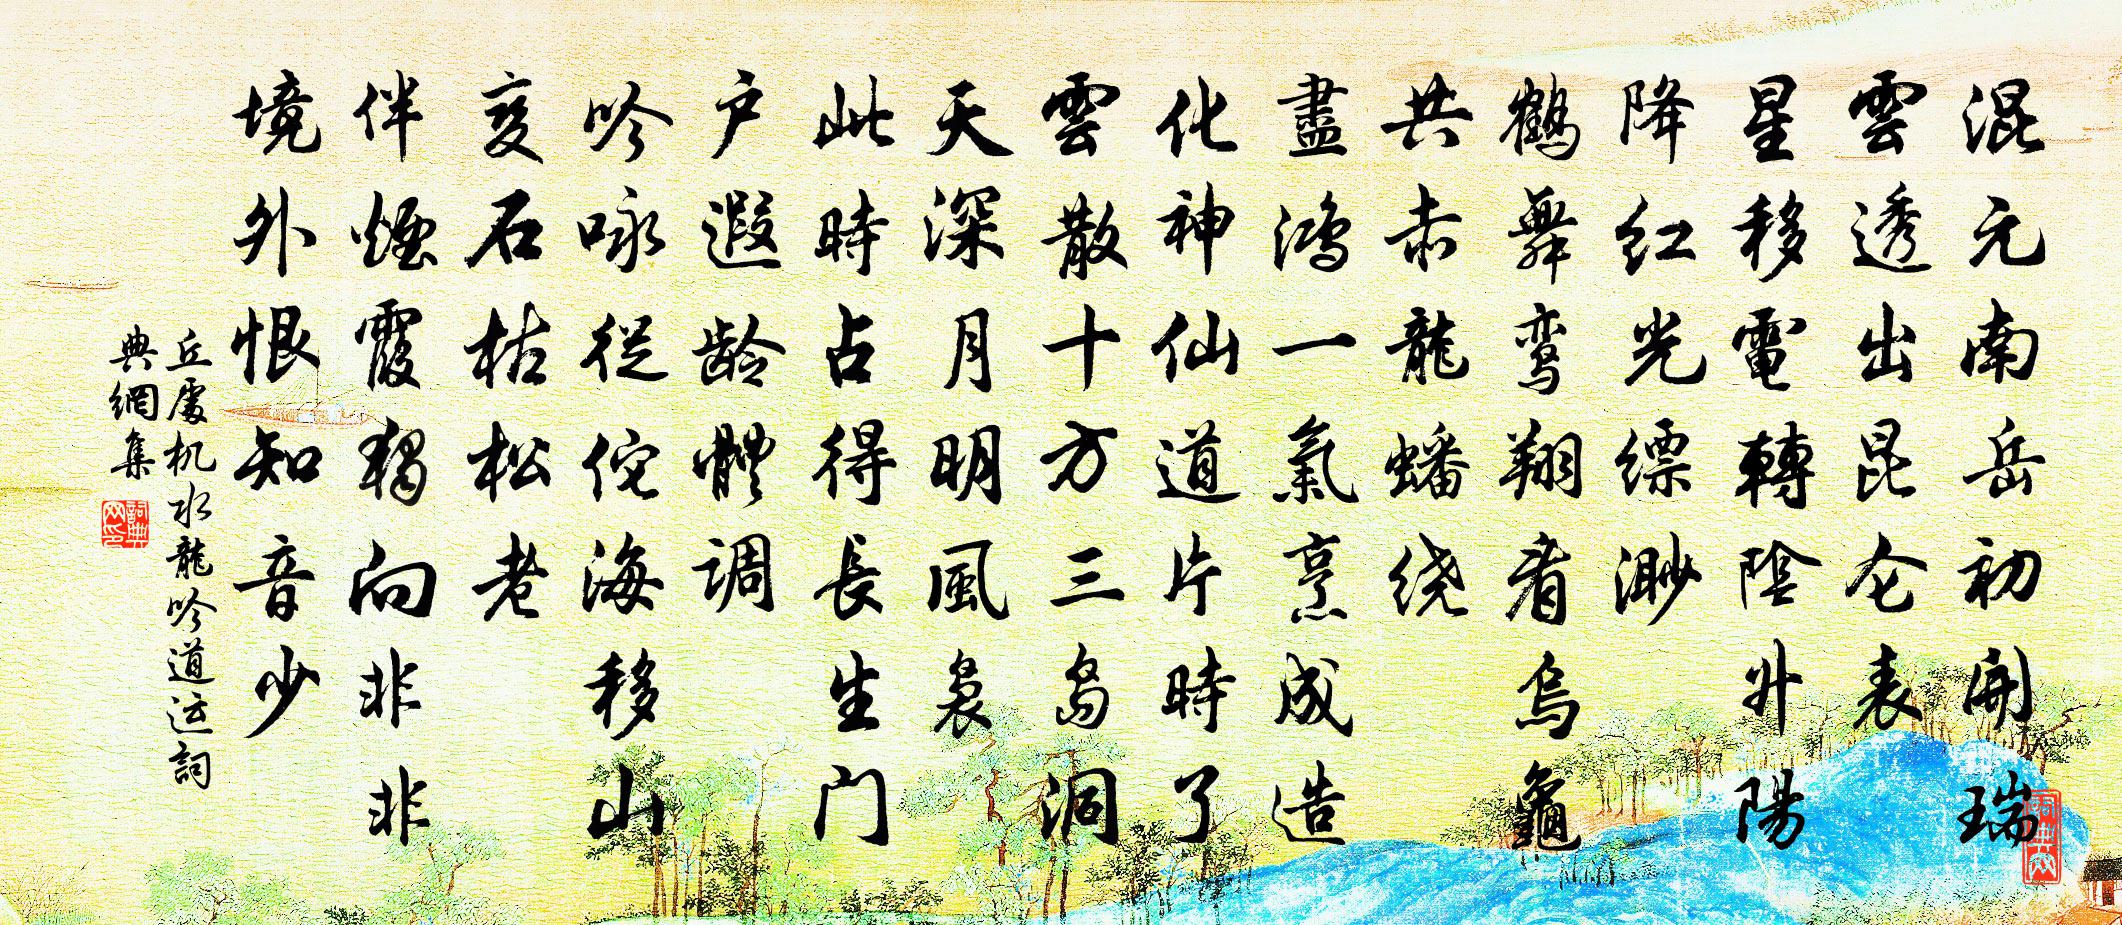 混元南岳初開瑞
雲透出昆仑表
星移電轉陰升陽
降红光缥渺
鶴舞鸾翔看烏龜
共赤龍蟠绕
盡鸿一氣烹成造
化神仙道片時了
雲散十方三岛洞
天深月明風袅
此時占得長生门
户遐龄體调
吟咏從佗海移山
变石枯松老
伴煙霞獨向非非
境外恨知音少
丘處机水龍吟道运詞
典網集
詞典网印
词典网